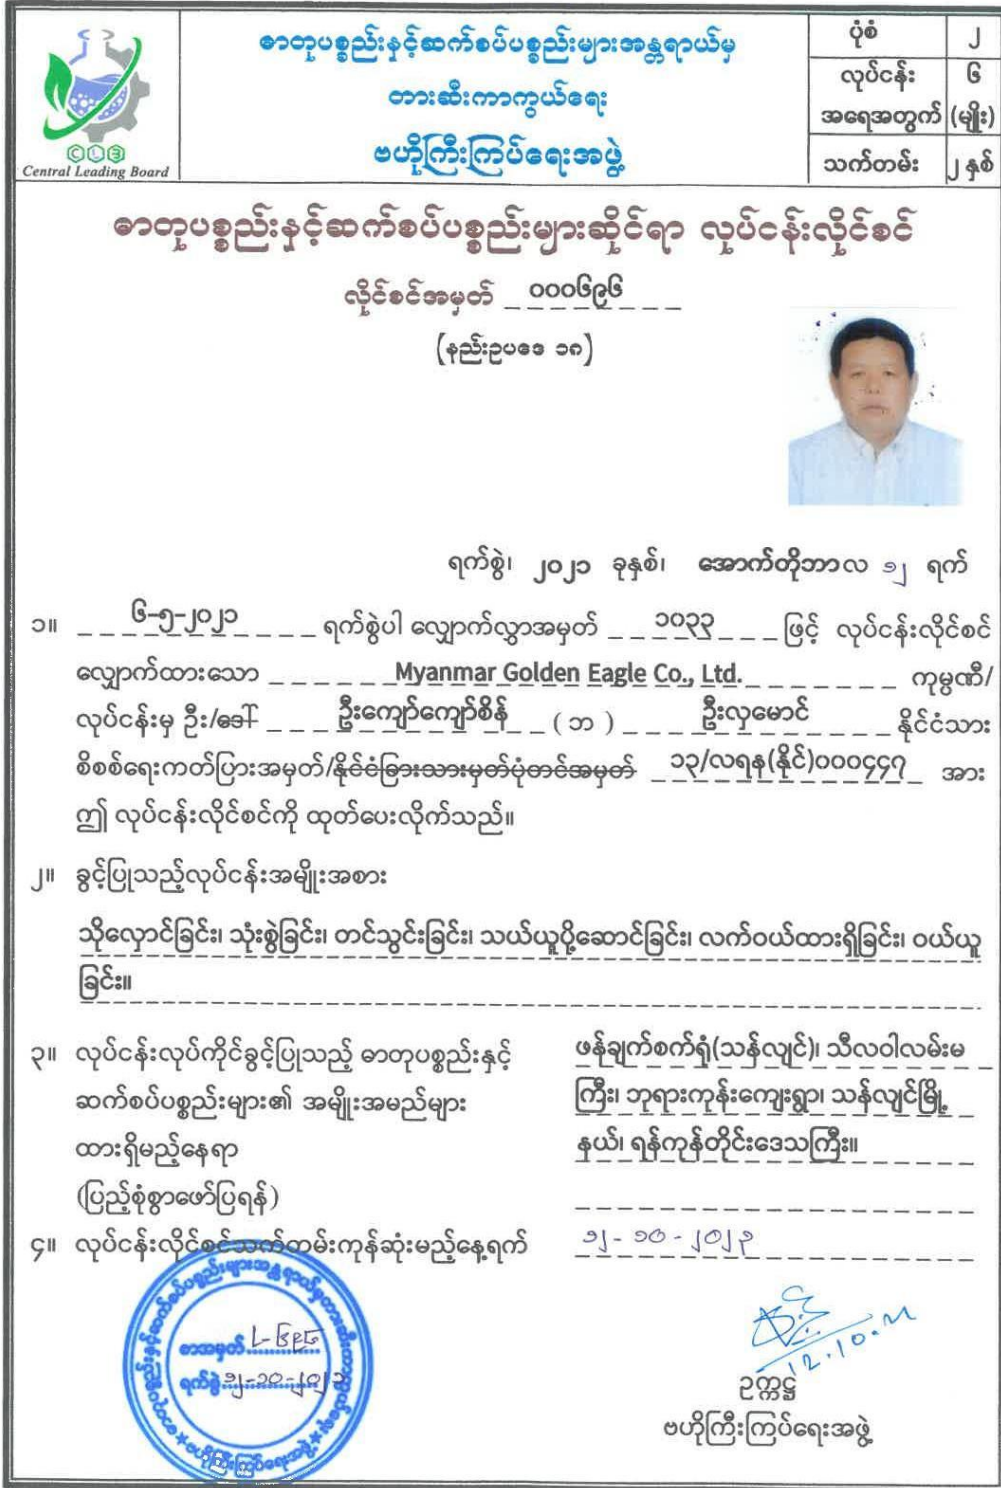 CLB
Central Leading Board
ဓာတုပစ္စည်းနှင့်ဆက်စပ်ပစ္စည်းများအန္တရာယ်မှ
တားဆီးကာကွယ်ရေး
ဗဟိုကြီးကြပ်ရေးအဖွဲ့
ပုံစံ ၂
လုပ်ငန်း ၆
အရေအတွက် (မျိုး)
သက်တမ်း ၂ နှစ်
ဓာတုပစ္စည်းနှင့်ဆက်စပ်ပစ္စည်းများဆိုင်ရာ လုပ်ငန်းလိုင်စင်
လိုင်စင်အမှတ် ၀၀၀၆၉၆
(နည်းဥပဒေ ၁၈)
ရက်စွဲ၊ ၂၀၂၁ ခုနှစ်၊ အောက်တိုဘာလ ၁၂ ရက်
၁။ ၆-၅-၂၀၂၁ ရက်စွဲပါ လျှောက်လွှာအမှတ် ၁၀၃၃ ဖြင့် လုပ်ငန်းလိုင်စင်
လျှောက်ထားသော Myanmar Golden Eagle Co., Ltd. ကုမ္ပဏီ/
လုပ်ငန်းမှ ဦး/ဒေါ် ဦးကျော်ကျော်စိန် (ဘ) ဦးလှမောင် နိုင်ငံသား
စိစစ်ရေးကတ်ပြားအမှတ်/နိုင်ငံခြားသားမှတ်ပုံတင်အမှတ် ၁၃/လရန(နိုင်)၀၀၀၄၄၇ အား
ဤ လုပ်ငန်းလိုင်စင်ကို ထုတ်ပေးလိုက်သည်။
၂။ ခွင့်ပြုသည့်လုပ်ငန်းအမျိုးအစား
သိုလှောင်ခြင်း၊ သုံးစွဲခြင်း၊ တင်သွင်းခြင်း၊ သယ်ယူပို့ဆောင်ခြင်း၊ လက်ဝယ်ထားရှိခြင်း၊ ဝယ်ယူ
ခြင်း။
၃။ လုပ်ငန်းလုပ်ကိုင်ခွင့်ပြုသည့် ဓာတုပစ္စည်းနှင့်
ဆက်စပ်ပစ္စည်းများ၏ အမျိုးအမည်များ
ထားရှိမည့်နေရာ
(ပြည့်စုံစွာဖော်ပြရန်)
ဖန်ချက်စက်ရုံ(သန်လျင်)၊ သီလဝါလမ်းမ
ကြီး၊ ဘုရားကုန်းကျေးရွာ၊ သန်လျင်မြို့
နယ်၊ ရန်ကုန်တိုင်းဒေသကြီး။
၄။ လုပ်ငန်းလိုင်စင်သက်တမ်းကုန်ဆုံးမည့်နေ့ရက် ၁၂-၁၀-၂၀၂၃
ဓာတုပစ္စည်းနှင့်ဆက်စပ်ပစ္စည်းများအန္တရာယ်မှတားဆီးကာကွယ်ရေး
စာအမှတ်
ရက်စွဲ ၁၂-၁၀-၂၀၂၁
ဗဟိုကြီးကြပ်ရေးအဖွဲ့
12.10.21
ဥက္ကဋ္ဌ
ဗဟိုကြီးကြပ်ရေးအဖွဲ့